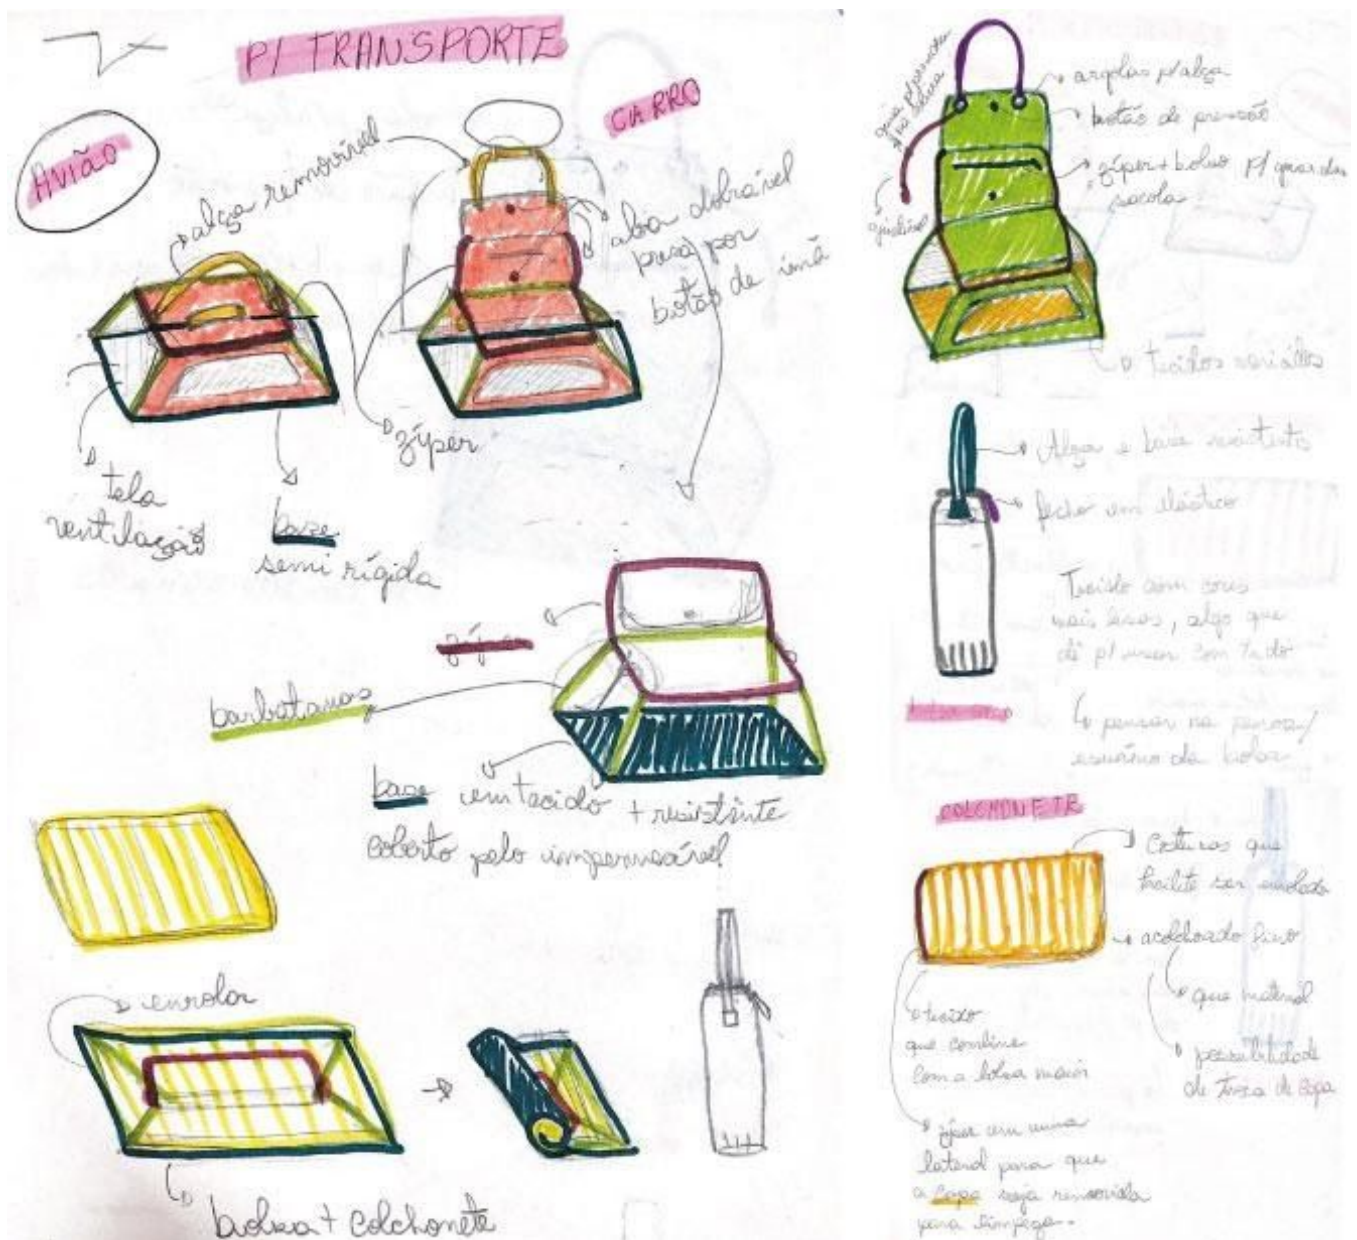 P/ TRANSPORTE
AVIÃO
CARRO
alça removível
aba dobrável
presa por
botão de imã
zíper
tela
ventilação
base
semi rígida
zíper
barbatanas
base em tecido + resistente
coberto pelo impermeável
enrolar
bolsa + colchonete
argolas p/ alça
botão de pressão
zíper + bolso p/ guardar
sacola
tecidos variados
Alça e base resistente
fecho em elástico
Tecido com cores
mais lisas, algo que
dê p/ usar com tudo
↳ pensar na pessoa/
usuário da bolsa
COLCHONETE
Costuras que
facilite ser enrolado
acolchoado fino
que material
possibilidade
de troca de capa
tecido
que combine
com a bolsa maior
zíper em uma
lateral para que
a capa seja removida
para limpeza.